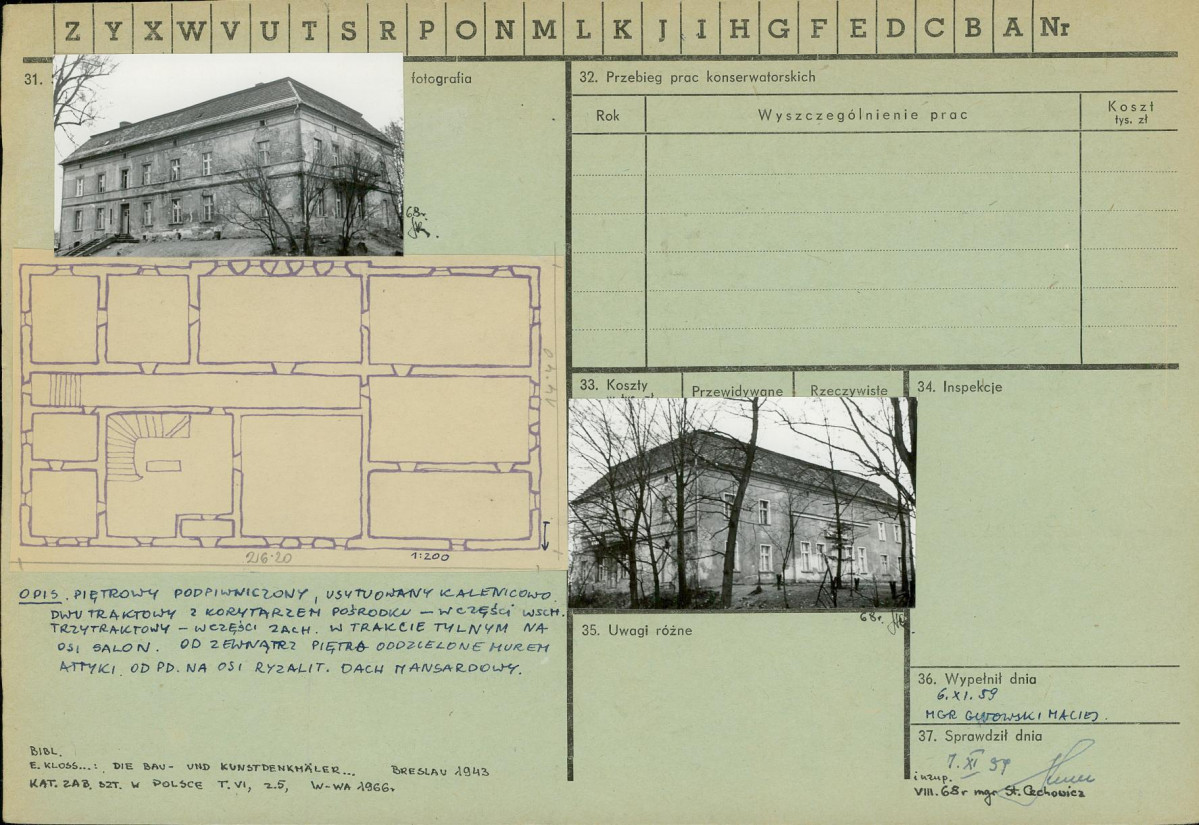 Z Y X W V U T S R P O N M L K J I H G F E D C B A Nr
31. fotografia
68r.
14.40
26.20
1:200
OPIS. PIĘTROWY PODPIWNICZONY, USYTUOWANY KALENICOWO.
DWUTRAKTOWY Z KORYTARZEM POŚRODKU – W CZĘŚCI WSCH.
TRZYTRAKTOWY – W CZĘŚCI ZACH. W TRAKCIE TYLNYM NA
OSI SALON. OD ZEWNĄTRZ PIĘTRA ODDZIELONE MUREM
ATTYKI. OD PD. NA OSI RYZALIT. DACH MANSARDOWY.
BIBL.
E. KLOSS...: DIE BAU- UND KUNSTDENKMÄLER... BRESLAU 1943
KAT. ZAB. SZT. W POLSCE T. VI, z.5, W-WA 1966r
32. Przebieg prac konserwatorskich
Rok Wyszczególnienie prac Koszt
tys. zł
33. Koszty Przewidywane Rzeczywiste
w tys. zł
34. Inspekcje
68r.
35. Uwagi różne
36. Wypełnił dnia
6.XI.59
MGR GUTOWSKI MACIEJ
37. Sprawdził dnia
7.XI 59
VIII.68r mgr St. Cechowicz